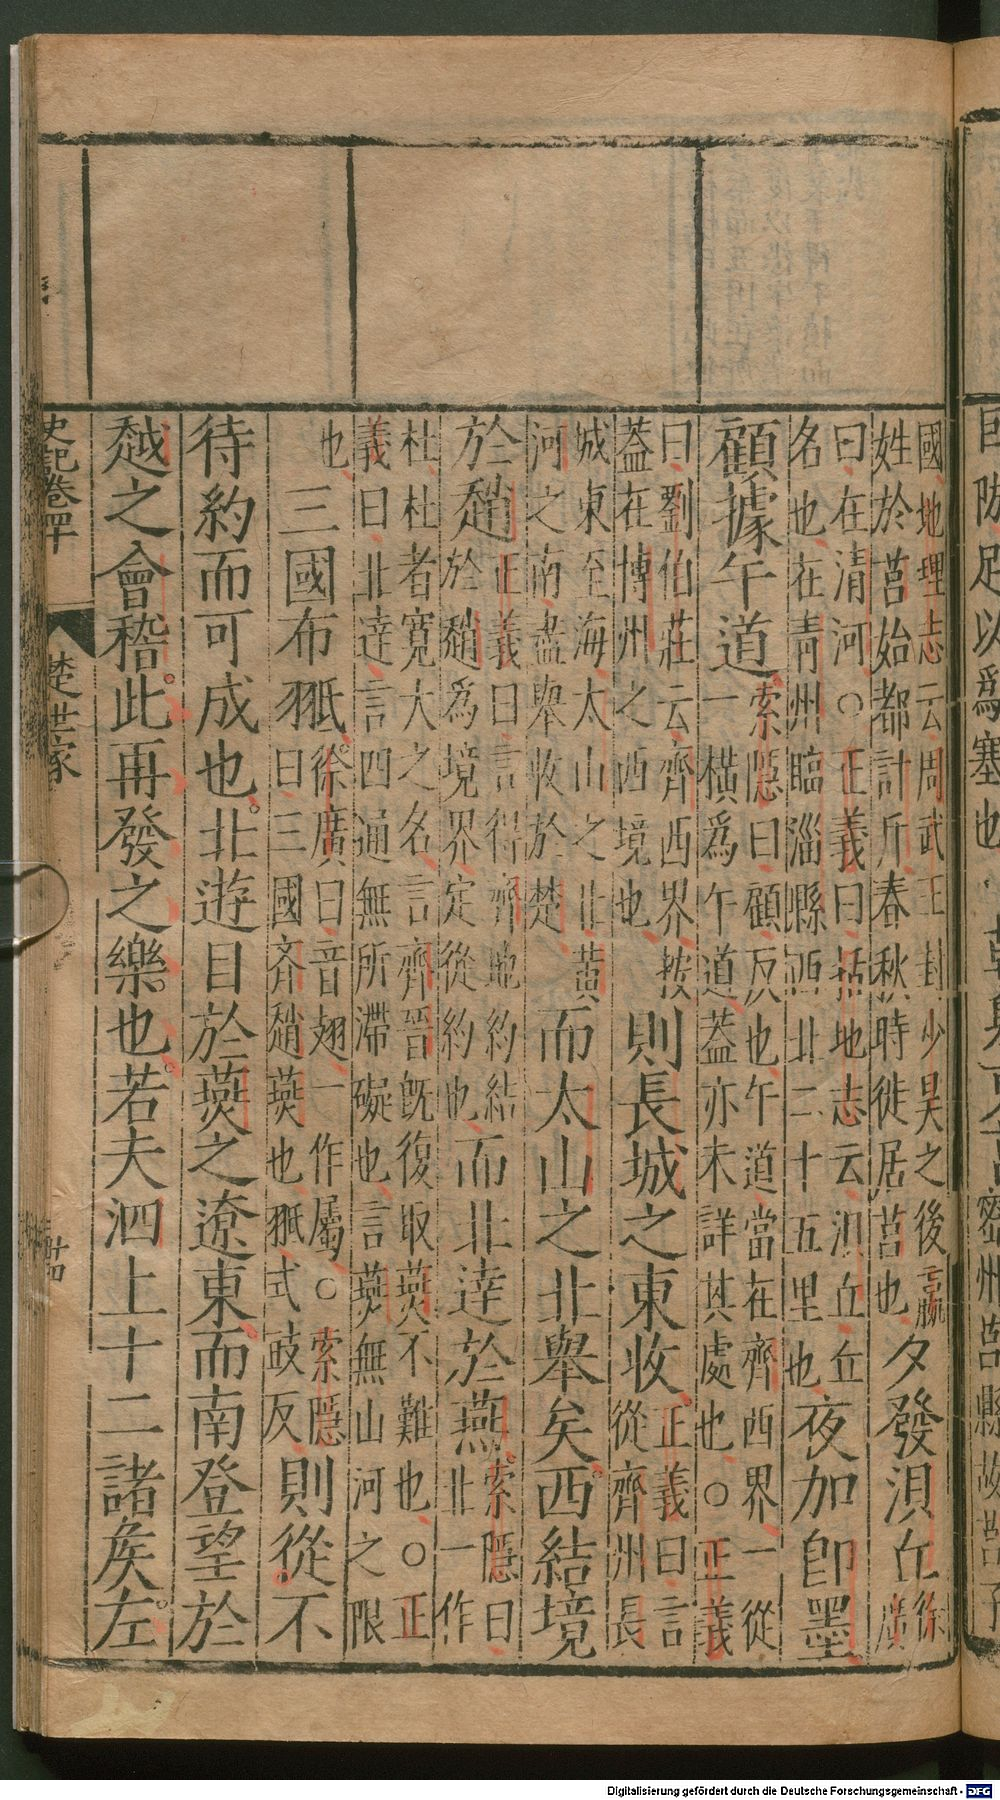 密州莒縣故莒子
國地理志云周武王封少昊之後嬴
姓於莒始都計斤春秋時徙居莒也
夕發浿丘
徐
廣
曰在清河○正義曰括地志云浿丘丘
名也在青州臨淄縣西北二十五里也
夜加卽墨
顧據午道
索隱曰顧反也午道當在齊西界一從
一橫爲午道蓋亦未詳其處也○正義
曰劉伯莊云齊西界按
蓋在博州之西境也
則長城之東收
正義曰言
從齊州長
城東至海太山之北黃
河之南盡舉收於楚
而太山之北舉矣西結境
於趙
正義曰言得齊地約結
於趙爲境界定從約也
而北達於燕
索隱曰
北一作
杜杜者寬大之名言齊晉既復取燕不難也○正
義曰北達言四通無所滯礙也言燕無山河之限
也
三國布𦐂
徐廣曰音翅一作屬○索隱
曰三國齊趙燕也𦐂式豉反
則從不
待約而可成也北遊目於燕之遼東而南登望於
越之會稽此再發之樂也若夫泗上十二諸侯左
史記卷四十
楚世家
廿四
Digitalisierung gefördert durch die Deutsche Forschungsgemeinschaft - DFG